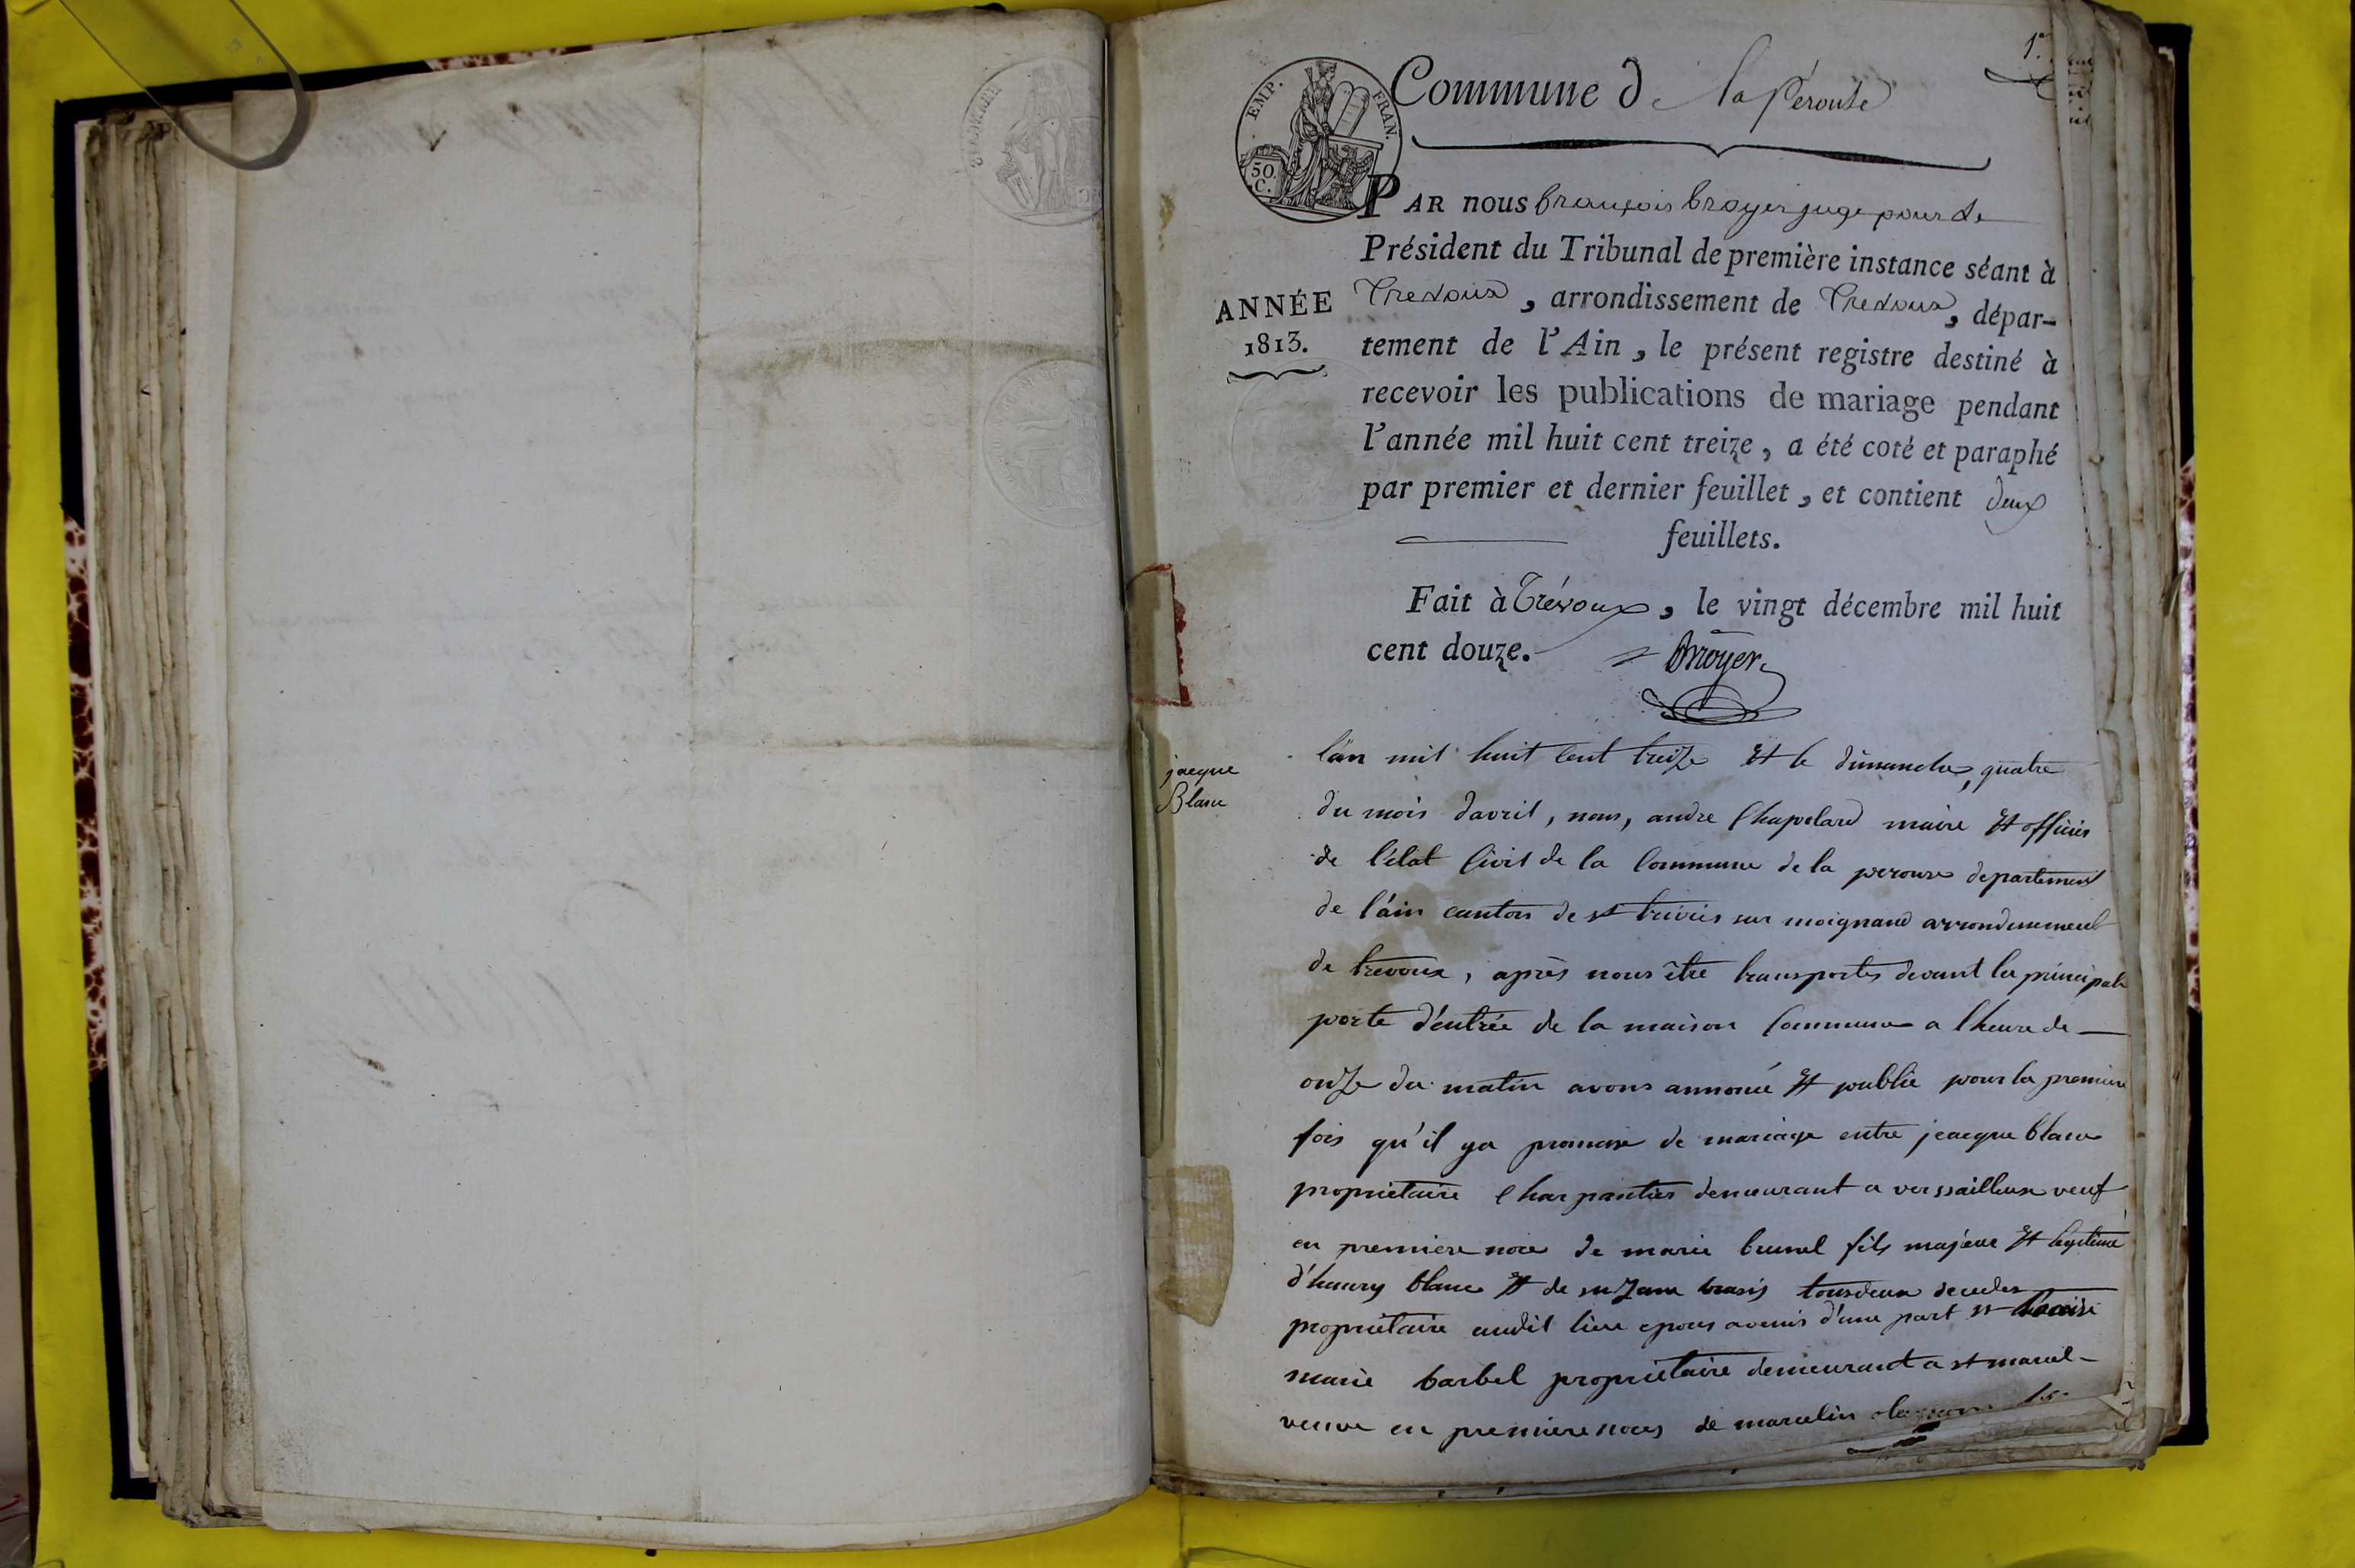 1er
EMP. FRAN.
50. C.
Commune de la Pérouse
PAR nous françois broyer juge pour le
Président du Tribunal de première instance séant à
ANNÉE
1813.
Trevoux, arrondissement de Trevoux, dépar-
tement de l'Ain, le présent registre destiné à
recevoir les publications de mariage pendant
l'année mil huit cent treize, a été coté et paraphé
par premier et dernier feuillet, et contient deux
feuillets.
Fait à Trévoux, le vingt décembre mil huit
cent douze.
Broyer
jacque
Blanc
l'an mil huit cent treize et le dimanche, quatre
du mois davril, nous, andre Chapelard maire et officier
de l'état Civil de la Commune de la perouse departement
de l'ain canton de st trivier sur moignand arrondissement
de trevoux, après nous être transportés devant la principale
porte d'entrée de la maison Commune a lheure de
onze du matin avons annoncé et publié pour la premiere
fois qu'il ya promesse de mariage entre jeacque blanc
propriétaire Charpantier demeurant a verssailleux veuf
en premiere noce de marie brunel fils majeur et legitime
d'henry blanc et de suzane tousdeux decedes
propriétaire audit lieu epoux avenir d'une part et
marie barbel propriétaire demeurant a st marcel
veuve en premiere noces de marcelin